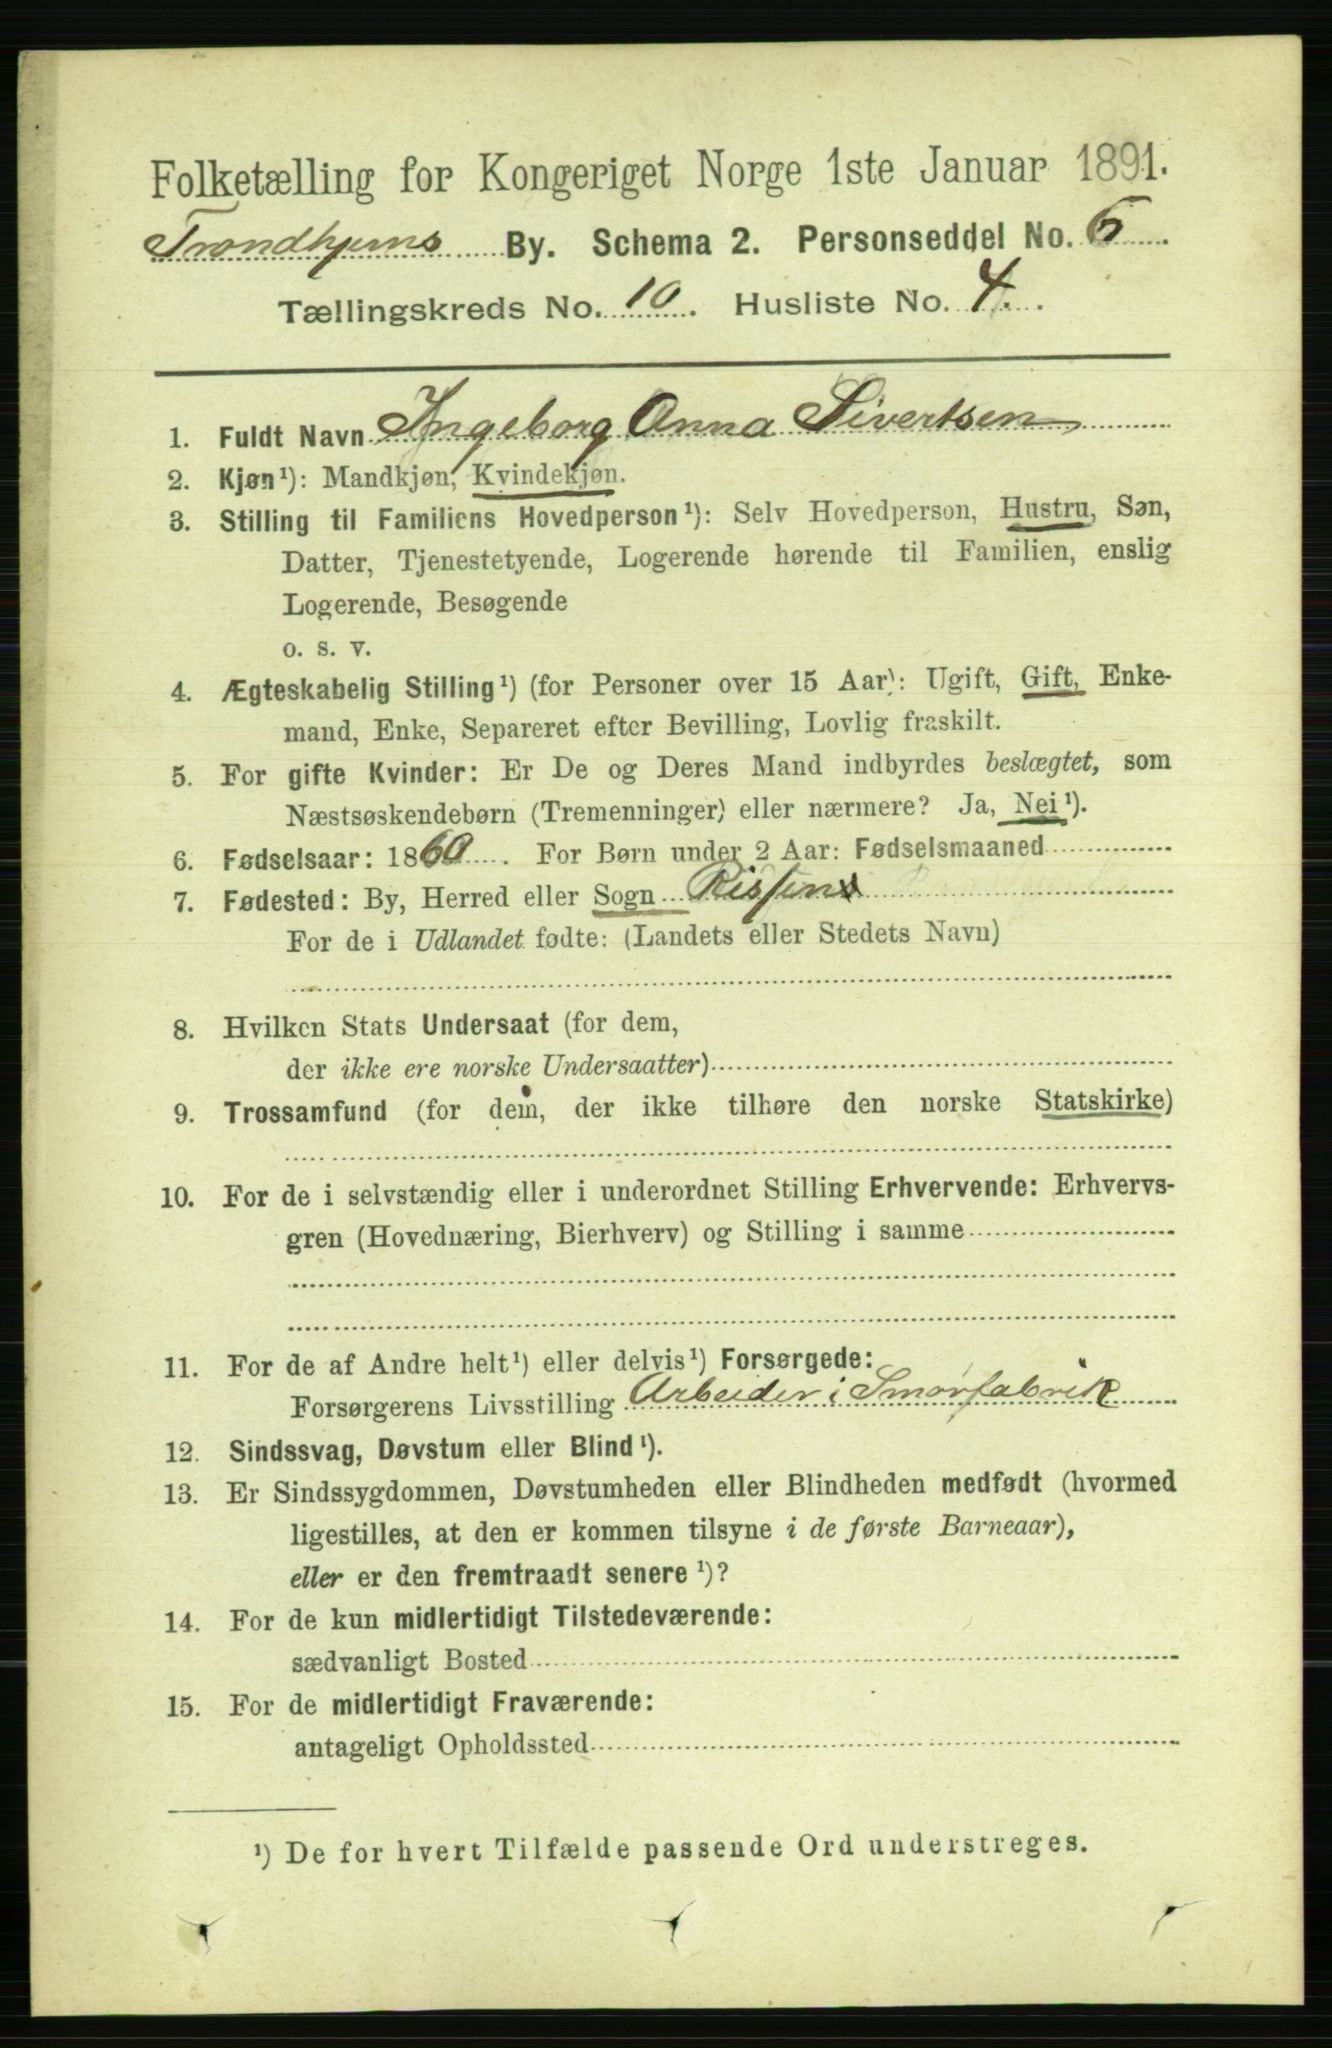 Folketælling for Kongeriget Norge 1ste Januar 1891.
Trondhjems By. Schema 2. Personseddel No. 6
Tællingskreds No. 10. Husliste No. 4.
1. Fuldt Navn Ingeborg Anna Sivertsen
2. Kjøn¹): Mandkjøn, Kvindekjøn.
3. Stilling til Familiens Hovedperson¹): Selv Hovedperson, Hustru, Søn,
Datter, Tjenestetyende, Logerende hørende til Familien, enslig
Logerende, Besøgende
o. s. v.
4. Ægteskabelig Stilling¹) (for Personer over 15 Aar): Ugift, Gift, Enke-
mand, Enke, Separeret efter Bevilling, Lovlig fraskilt.
5. For gifte Kvinder: Er De og Deres Mand indbyrdes beslægtet, som
Næstsøskendebørn (Tremenninger) eller nærmere? Ja, Nei¹).
6. Fødselsaar: 1860. For Børn under 2 Aar: Fødselsmaaned
7. Fødested: By, Herred eller Sogn Rissens
For de i Udlandet fødte: (Landets eller Stedets Navn)
8. Hvilken Stats Undersaat (for dem,
der ikke ere norske Undersaatter)
9. Trossamfund (for dem, der ikke tilhøre den norske Statskirke)
10. For de i selvstændig eller i underordnet Stilling Erhvervende: Erhvervs-
gren (Hovednæring, Bierhverv) og Stilling i samme
11. For de af Andre helt¹) eller delvis¹) Forsørgede:
Forsørgerens Livsstilling Arbeider i Smørfabrik
12. Sindssvag, Døvstum eller Blind¹).
13. Er Sindssygdommen, Døvstumheden eller Blindheden medfødt (hvormed
ligestilles, at den er kommen tilsyne i de første Barneaar),
eller er den fremtraadt senere¹)?
14. For de kun midlertidigt Tilstedeværende:
sædvanligt Bosted
15. For de midlertidigt Fraværende:
antageligt Opholdssted
¹) De for hvert Tilfælde passende Ord understreges.